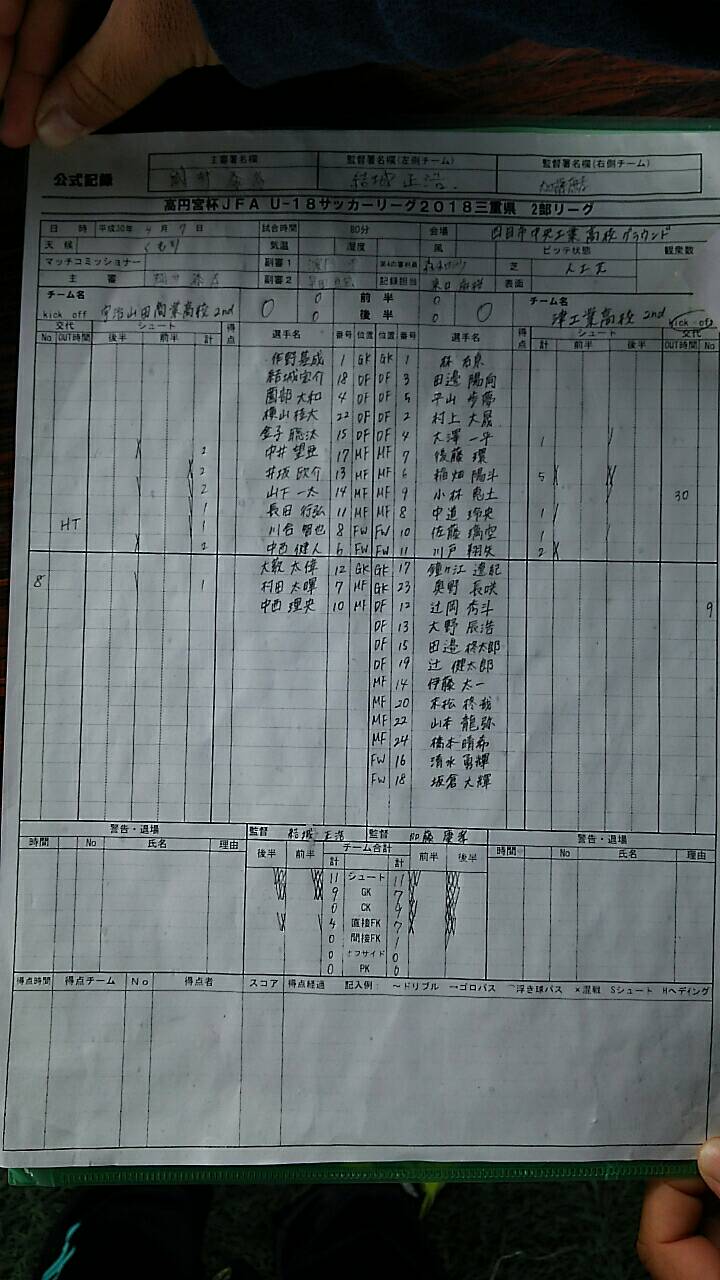 公式記録 主審署名欄 監督署名欄(左側チーム) 監督署名欄(右側チーム)
結城 正浩
高円宮杯JFA U-18サッカーリーグ2018三重県 2部リーグ
日時 平成30年 4月 7日 試合時間 80分 会場 四日市中央工業高校グラウンド
天候 くもり 気温 湿度 風 ピッチ状態 観衆数
マッチコミッショナー 副審1 第4の審判員 芝 人工芝
主審 副審2 記録担当 表面
チーム名 0 0 前半 0 0 チーム名
kick off 宇治山田商業高校2nd 0 後半 0 津工業高校2nd kick off
交代 シュート 得点 選手名 番号 位置 位置 番号 選手名 得点 シュート 交代
No OUT時間 後半 前半 計 計 前半 後半 OUT時間 No
1 GK GK 1 林
結城宏介 18 DF DF 3 田邊 陽向
園部 大和 4 DF DF 5 平山 歩夢
横山 桂大 22 DF DF 2 村上 大晟
金子 聡汰 15 DF DF 4 大澤 一平 1
2 中井 望亜 17 MF MF 7 後藤 環
2 井坂 欣介 13 MF MF 6 稲畑 陽斗 5
2 山下 一太 14 MF MF 9 小林 30
1 長田 行弘 11 MF MF 8 中道 1
HT 1 川合 智也 8 FW FW 10 佐藤 璃空 1
2 中西 健人 6 FW FW 11 川戸 翔矢 2
大薮 太偉 12 GK GK 17 鐘ヶ江 遼紀
8 1 村田 太暉 7 MF GK 23 奥野 長咲
中西 理央 10 MF DF 12 辻岡 秀斗 9
DF 13 大野 辰浩
DF 15 田邉 柊太郎
DF 19 辻 健太郎
MF 14 伊藤 太一
MF 20 末松 柊哉
MF 22 山本 龍弥
MF 24 橋本 晴希
FW 16 清水 勇輝
FW 18 坂倉 大輝
警告・退場 監督 結城 正浩 監督 加藤 康孝 警告・退場
時間 No 氏名 理由 後半 前半 チーム合計 前半 後半 時間 No 氏名 理由
計 計
11 シュート 11
9 GK 7
0 CK 9
4 直接FK 7
0 間接FK 1
0 オフサイド 0
0 PK 0
得点時間 得点チーム No 得点者 スコア 得点経過 記入例: ～ドリブル →ゴロパス ⌒浮き球パス ×混戦 Sシュート Hヘディング